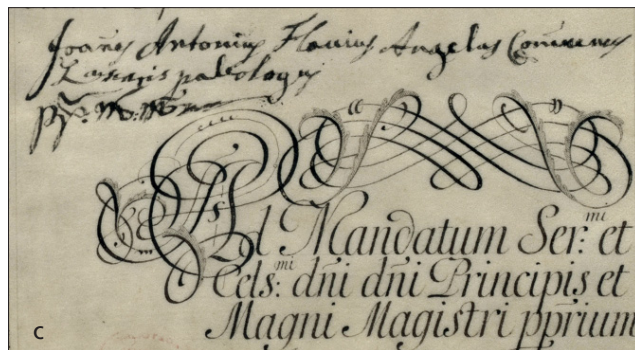 Joañes Antonius Flavius Angelus Comnenus
Lascaris paleologus
Ad Mandatum Ser:mi et
Cels:mi dñi dñi Principis et
Magni Magistri pp̃rium
C